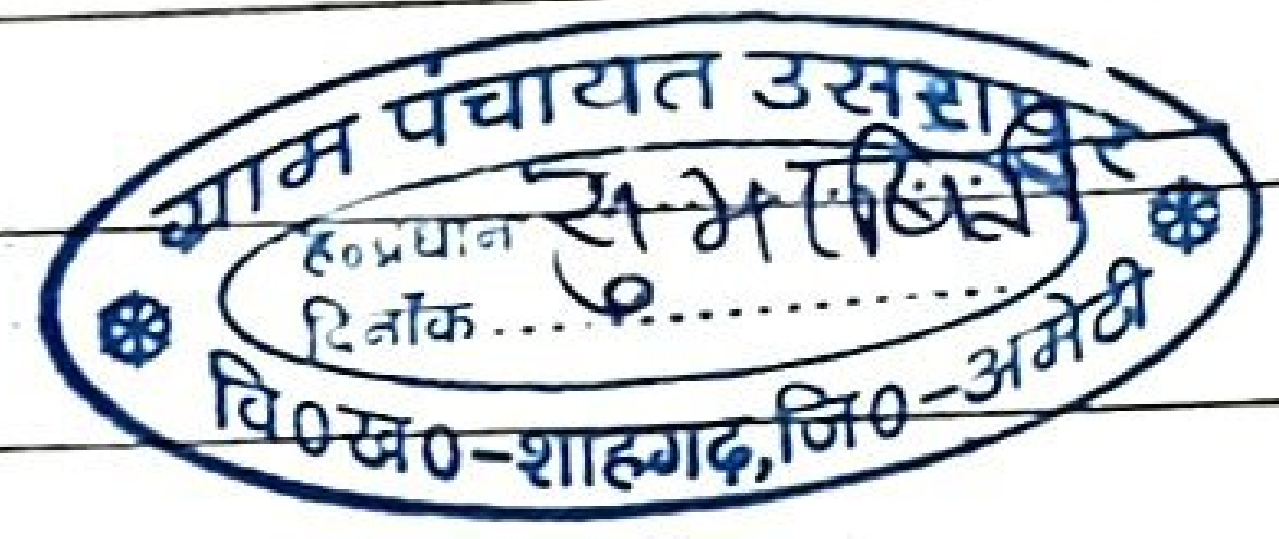 ग्राम पंचायत
ह०प्रधान
दिनाँक
वि०ख०-शाहगढ, जि०-अमेठी